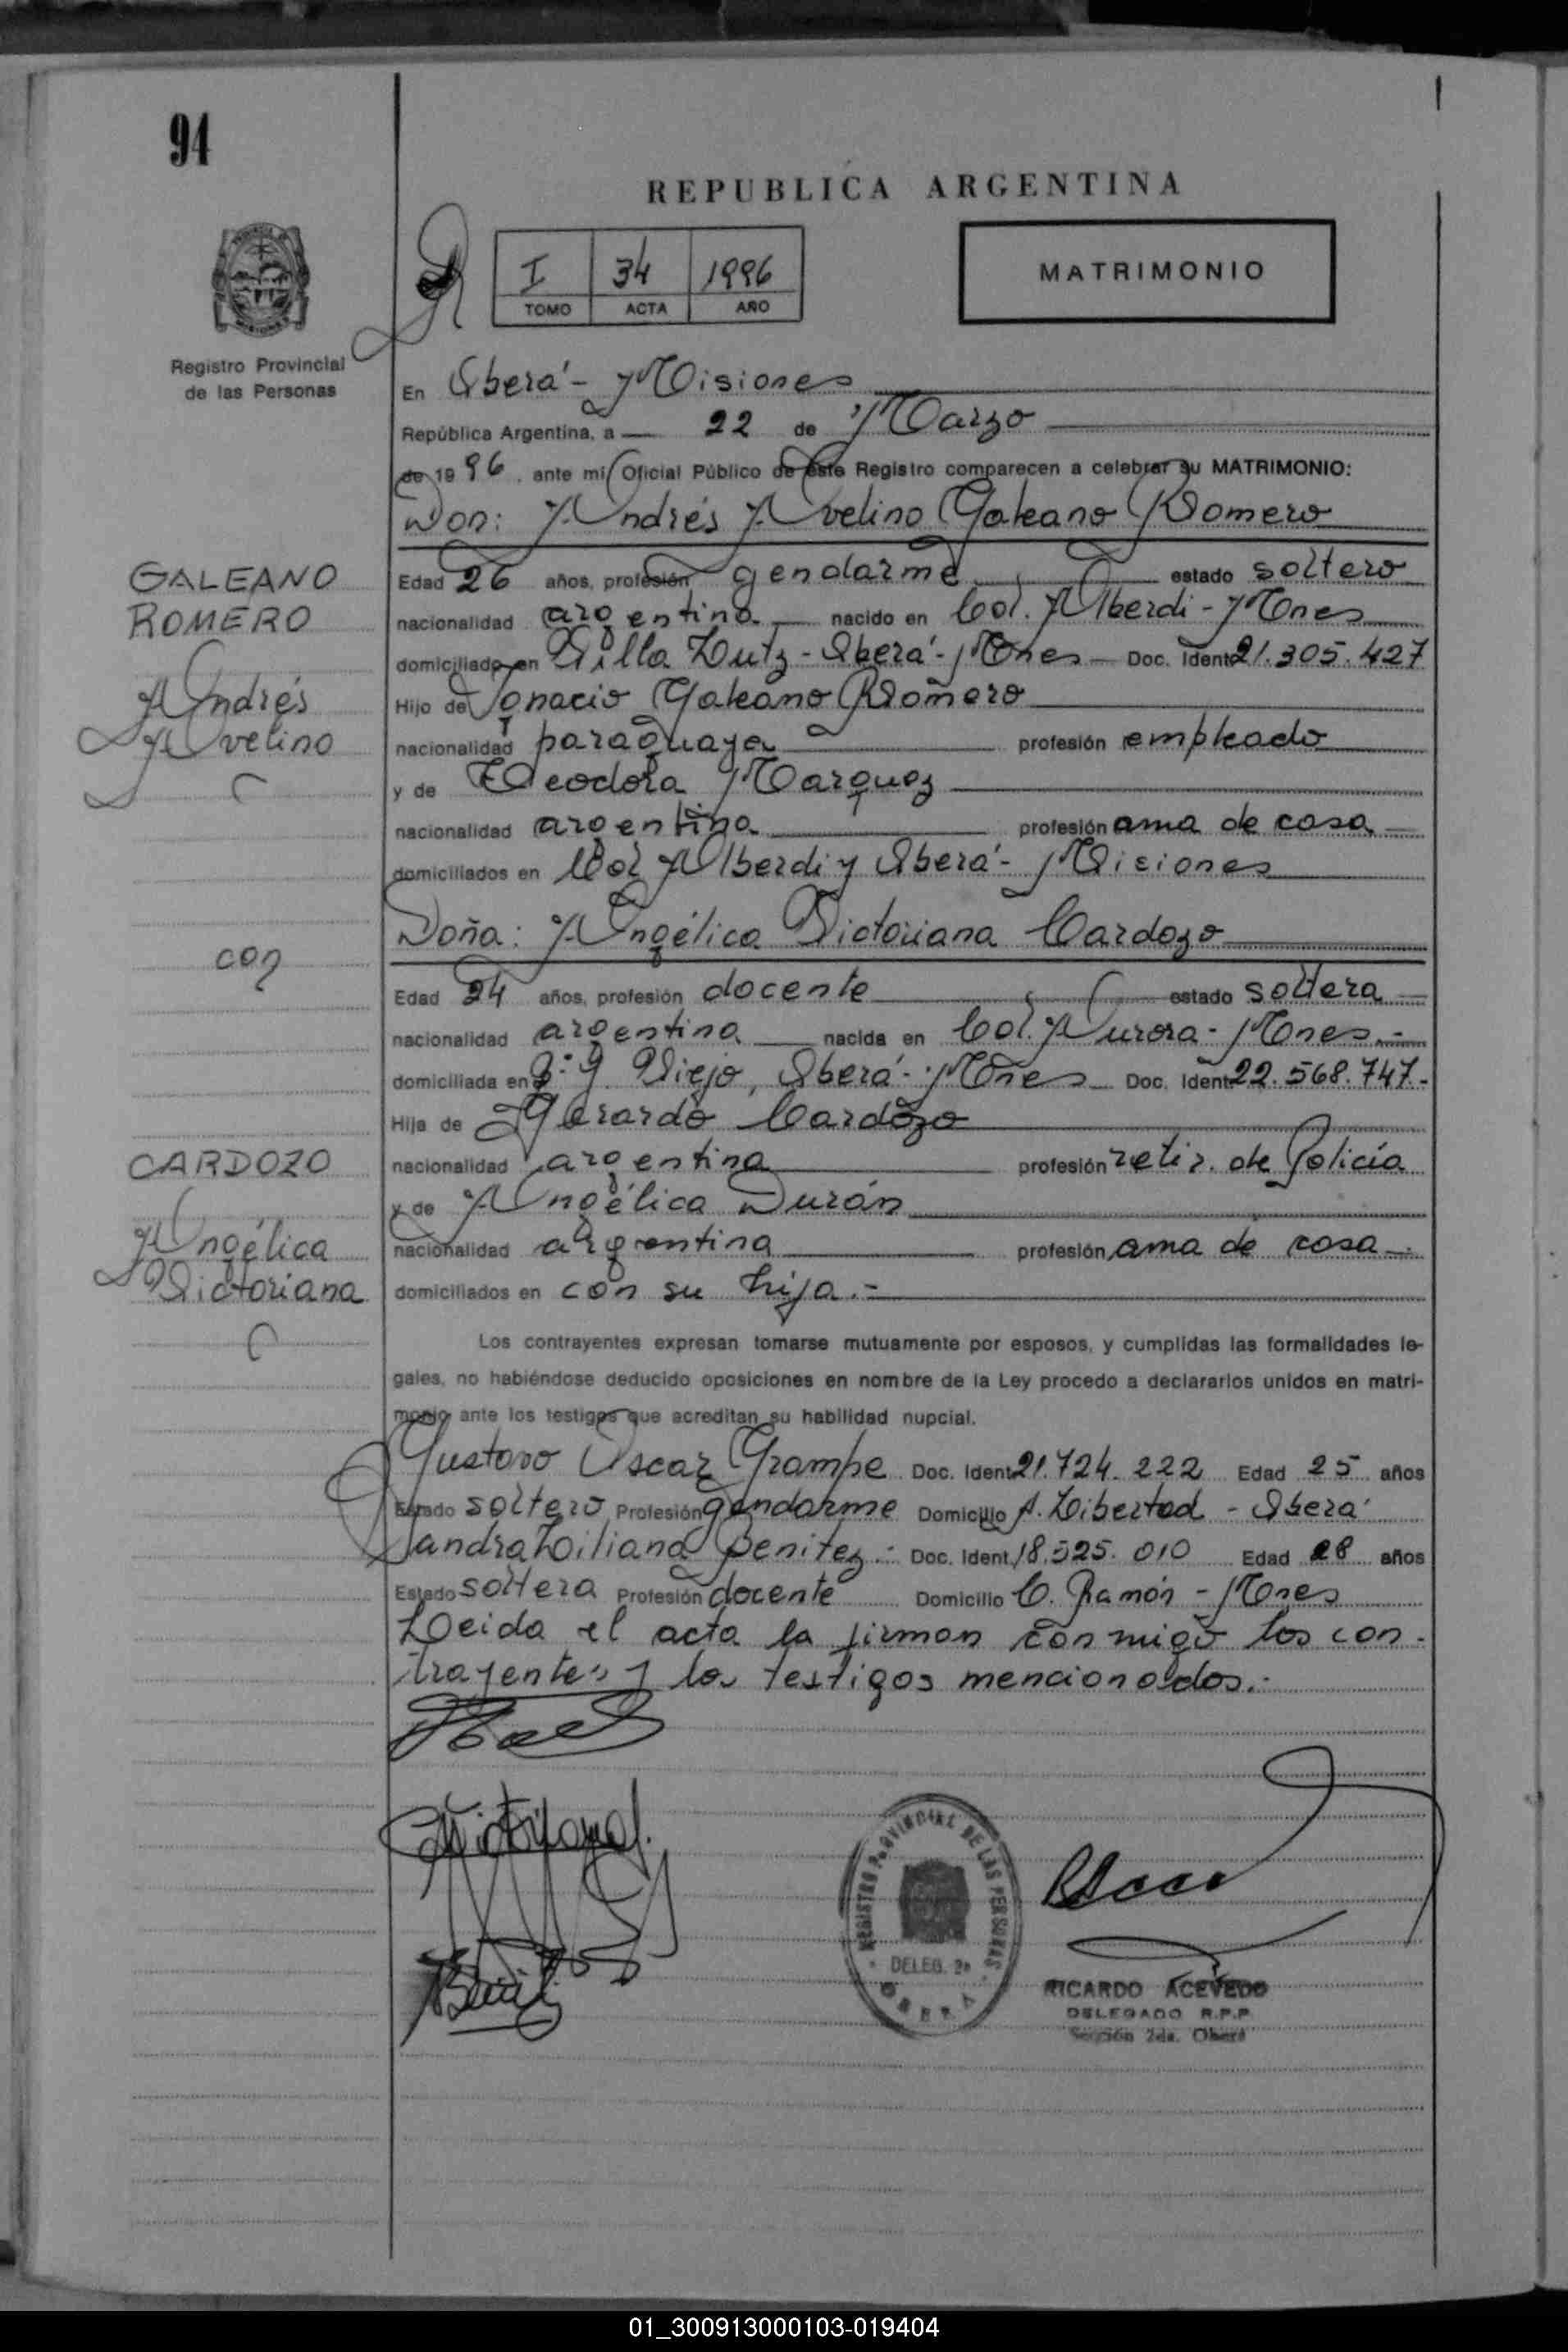 94
REPUBLICA ARGENTINA
I 34 1996
TOMO ACTA AÑO
MATRIMONIO
Registro Provincial
de las Personas
En Oberá - Misiones
República Argentina, a 22 de Marzo
de 1996, ante mi Oficial Público de este Registro comparecen a celebrar su MATRIMONIO:
Don: Andrés Avelino Galeano Romero
GALEANO
ROMERO
Andrés
Avelino
Edad 26 años, profesión gendarme estado soltero
nacionalidad argentina nacido en Col. Alberdi - Mnes
domiciliado en Villa Lutz - Oberá - Mnes Doc. Ident. 21.305.427
Hijo de Ignacio Galeano Romero
nacionalidad paraguaya profesión empleado
y de Teodora Marquez
nacionalidad argentina profesión ama de casa
domiciliados en Col Alberdi y Oberá - Misiones
Doña: Angélica Victoriana Cardozo
con
Edad 24 años, profesión docente estado soltera
nacionalidad argentina nacida en Col. Aurora - Mnes.-
domiciliada en Viejo, Oberá - Mnes Doc. Ident. 22.568.747.-
Hija de Gerardo Cardozo
CARDOZO
Angélica
Victoriana
nacionalidad argentina profesión retir. de Policía
y de Angélica Durán
nacionalidad argentina profesión ama de casa.-
domiciliados en con su hija.-
Los contrayentes expresan tomarse mutuamente por esposos, y cumplidas las formalidades le-
gales, no habiéndose deducido oposiciones en nombre de la Ley procedo a declararlos unidos en matri-
monio ante los testigos que acreditan su habilidad nupcial.
Gustavo Oscar Grampe Doc. Ident. 21.724.222 Edad 25 años
Estado soltero Profesión gendarme Domicilio A. Libertad - Oberá
Sandra Liliana Benitez.- Doc. Ident. 18.525.010 Edad 28 años
Estado soltera Profesión docente Domicilio C. Ramón - Mnes
Leida el acta la firman conmigo los con-
trayentes y los testigos mencionados.-
REGISTRO PROVINCIAL DE LAS PERSONAS
DELEG. 2a
OBERA
RICARDO ACEVEDO
DELEGADO R.P.P.
Sección 2da. Oberá
01_300913000103-019404